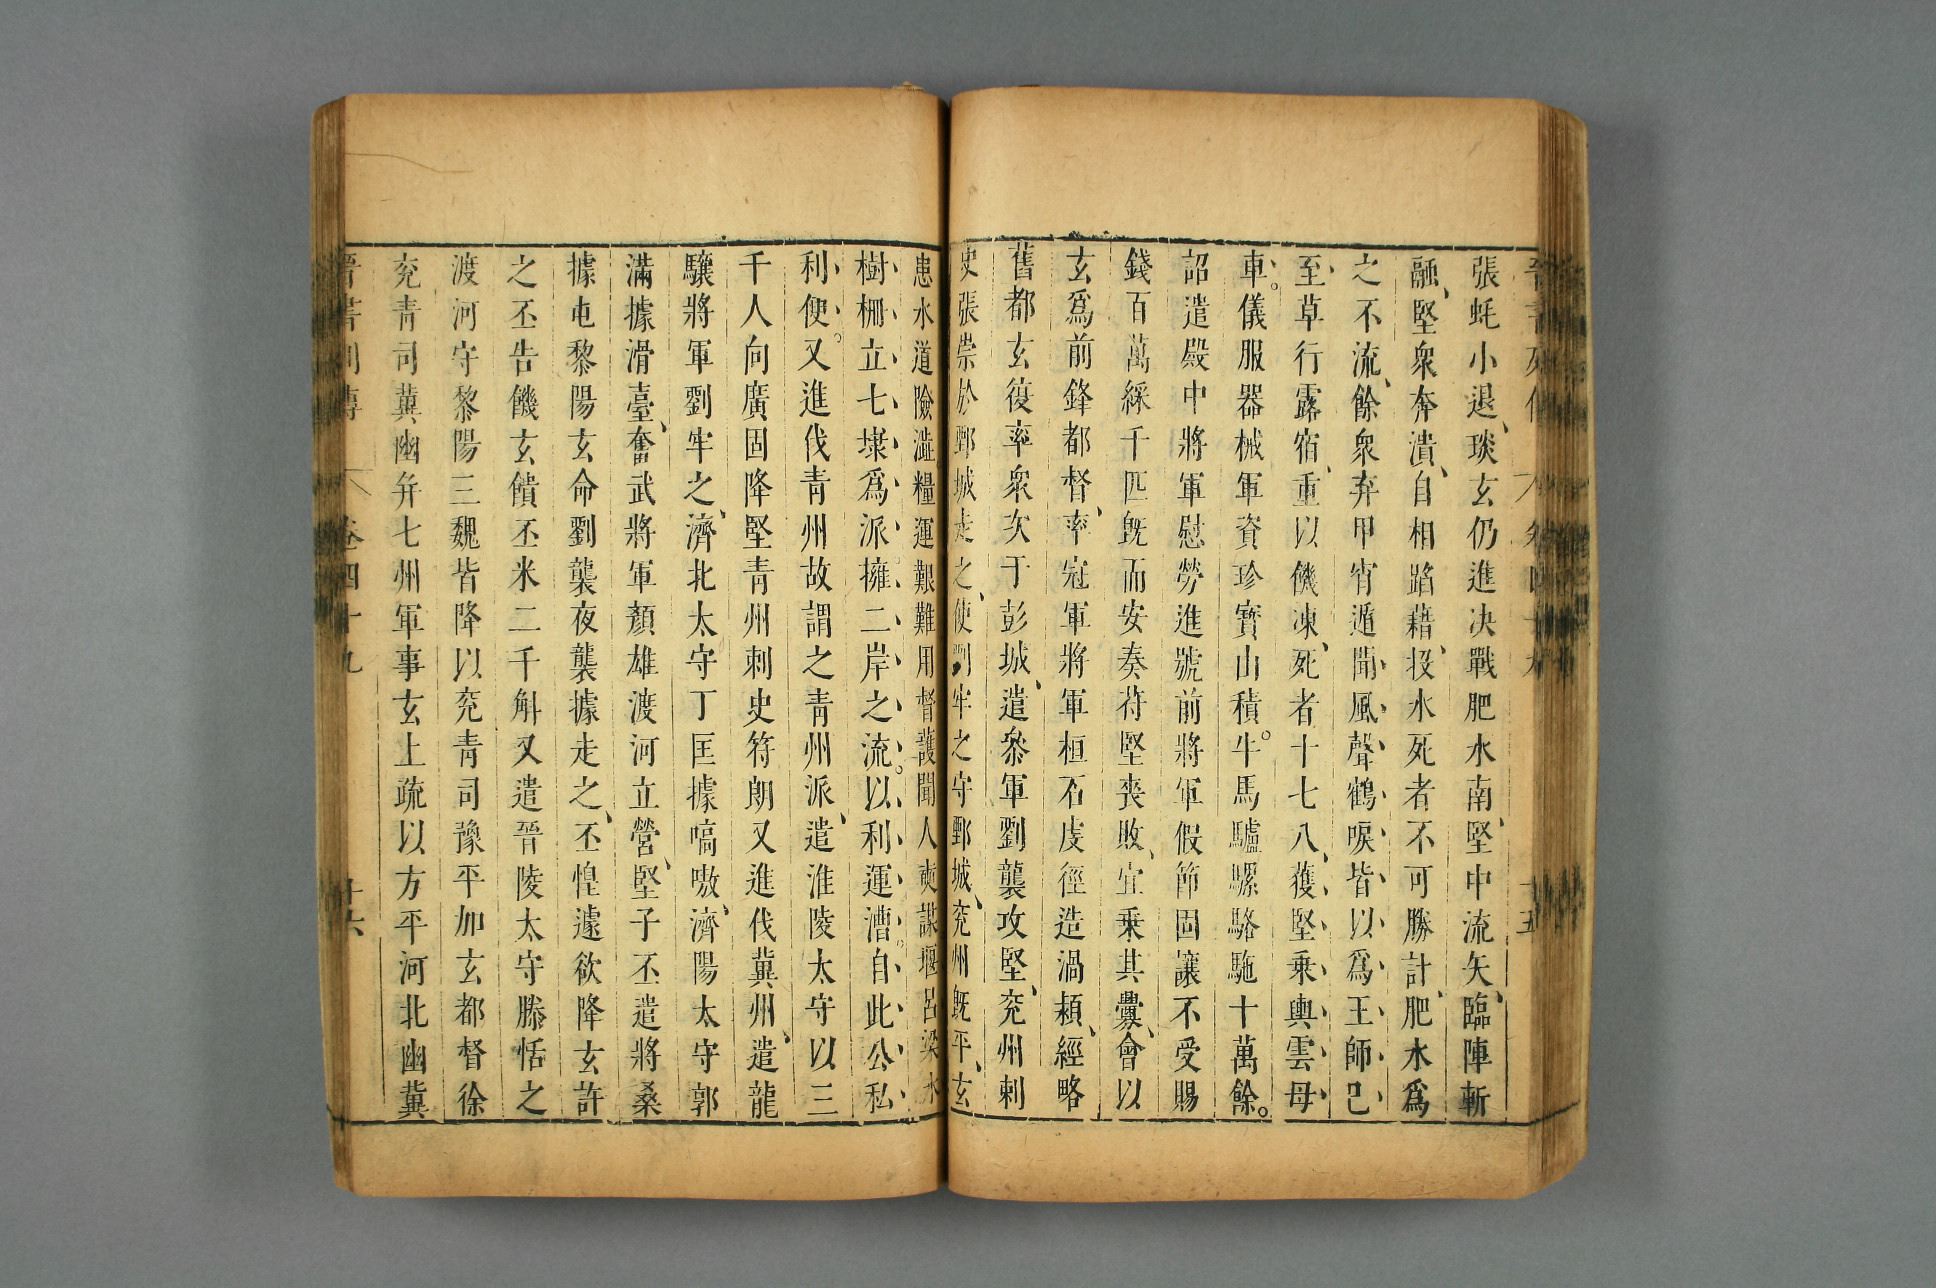 張蚝小退、琰玄仍進决戰肥水南、堅中流矢、臨陣斬
融、堅衆奔潰、自相蹈藉、投水死者不可勝計、肥水爲
之不流、餘衆弃甲宵遁聞風聲鶴唳皆以爲王師已
至、草行露宿、重以饑凍、死者十七八、獲堅乗輿雲母
車。儀服器械軍資珍寳山積。牛馬驢騾駱駞十萬餘。
詔遣殿中將軍慰勞進號前將軍假節固讓不受賜
錢百萬綵千匹既而安奏苻堅喪敗、宜乗其釁、會以
玄爲前鋒都督、率冠軍將軍桓石虔徑造渦潁、經略
舊都玄復率衆次于彭城、遣叅軍劉襲攻堅、兖州刺
史張崇於鄄城走之、使劉牢之守鄄城、兖州既平、玄
患水道險澁。糧運艱難用督護聞人奭謀堰呂梁水
樹柵立七埭爲派擁二岸之流。以利運漕。自此公私
利便。又進伐青州故謂之青州派、遣淮陵太守以三
千人向廣固降堅青州刺史符朗又進伐冀州、遣龍
驤將軍劉牢之、濟北太守丁匡據碻磝、濟陽太守郭
滿據滑臺、奮武將軍顏雄渡河立營、堅子丕遣將桑
據屯黎陽玄命劉襲夜襲據走之、丕惶遽欲降玄許
之丕告饑玄饋丕米二千斛又遣晉陵太守滕恬之
渡河守黎陽三魏皆降以兖青司豫平加玄都督徐
兖青司冀幽并七州軍事玄上疏以方平河北幽冀
晉書列傳 卷四十九 十六